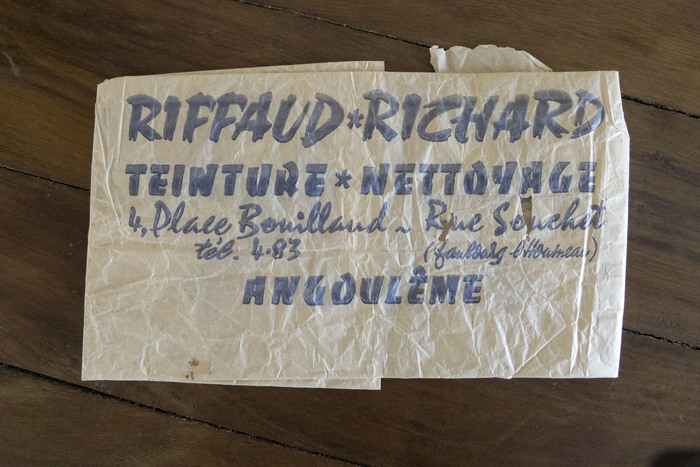 RIFFAUD * RICHARD
TEINTURE * NETTOYAGE
4, Place Bouillaud ~ Rue Souchet
tél. 4-83 (faubourg l'Houmeau)
ANGOULÊME